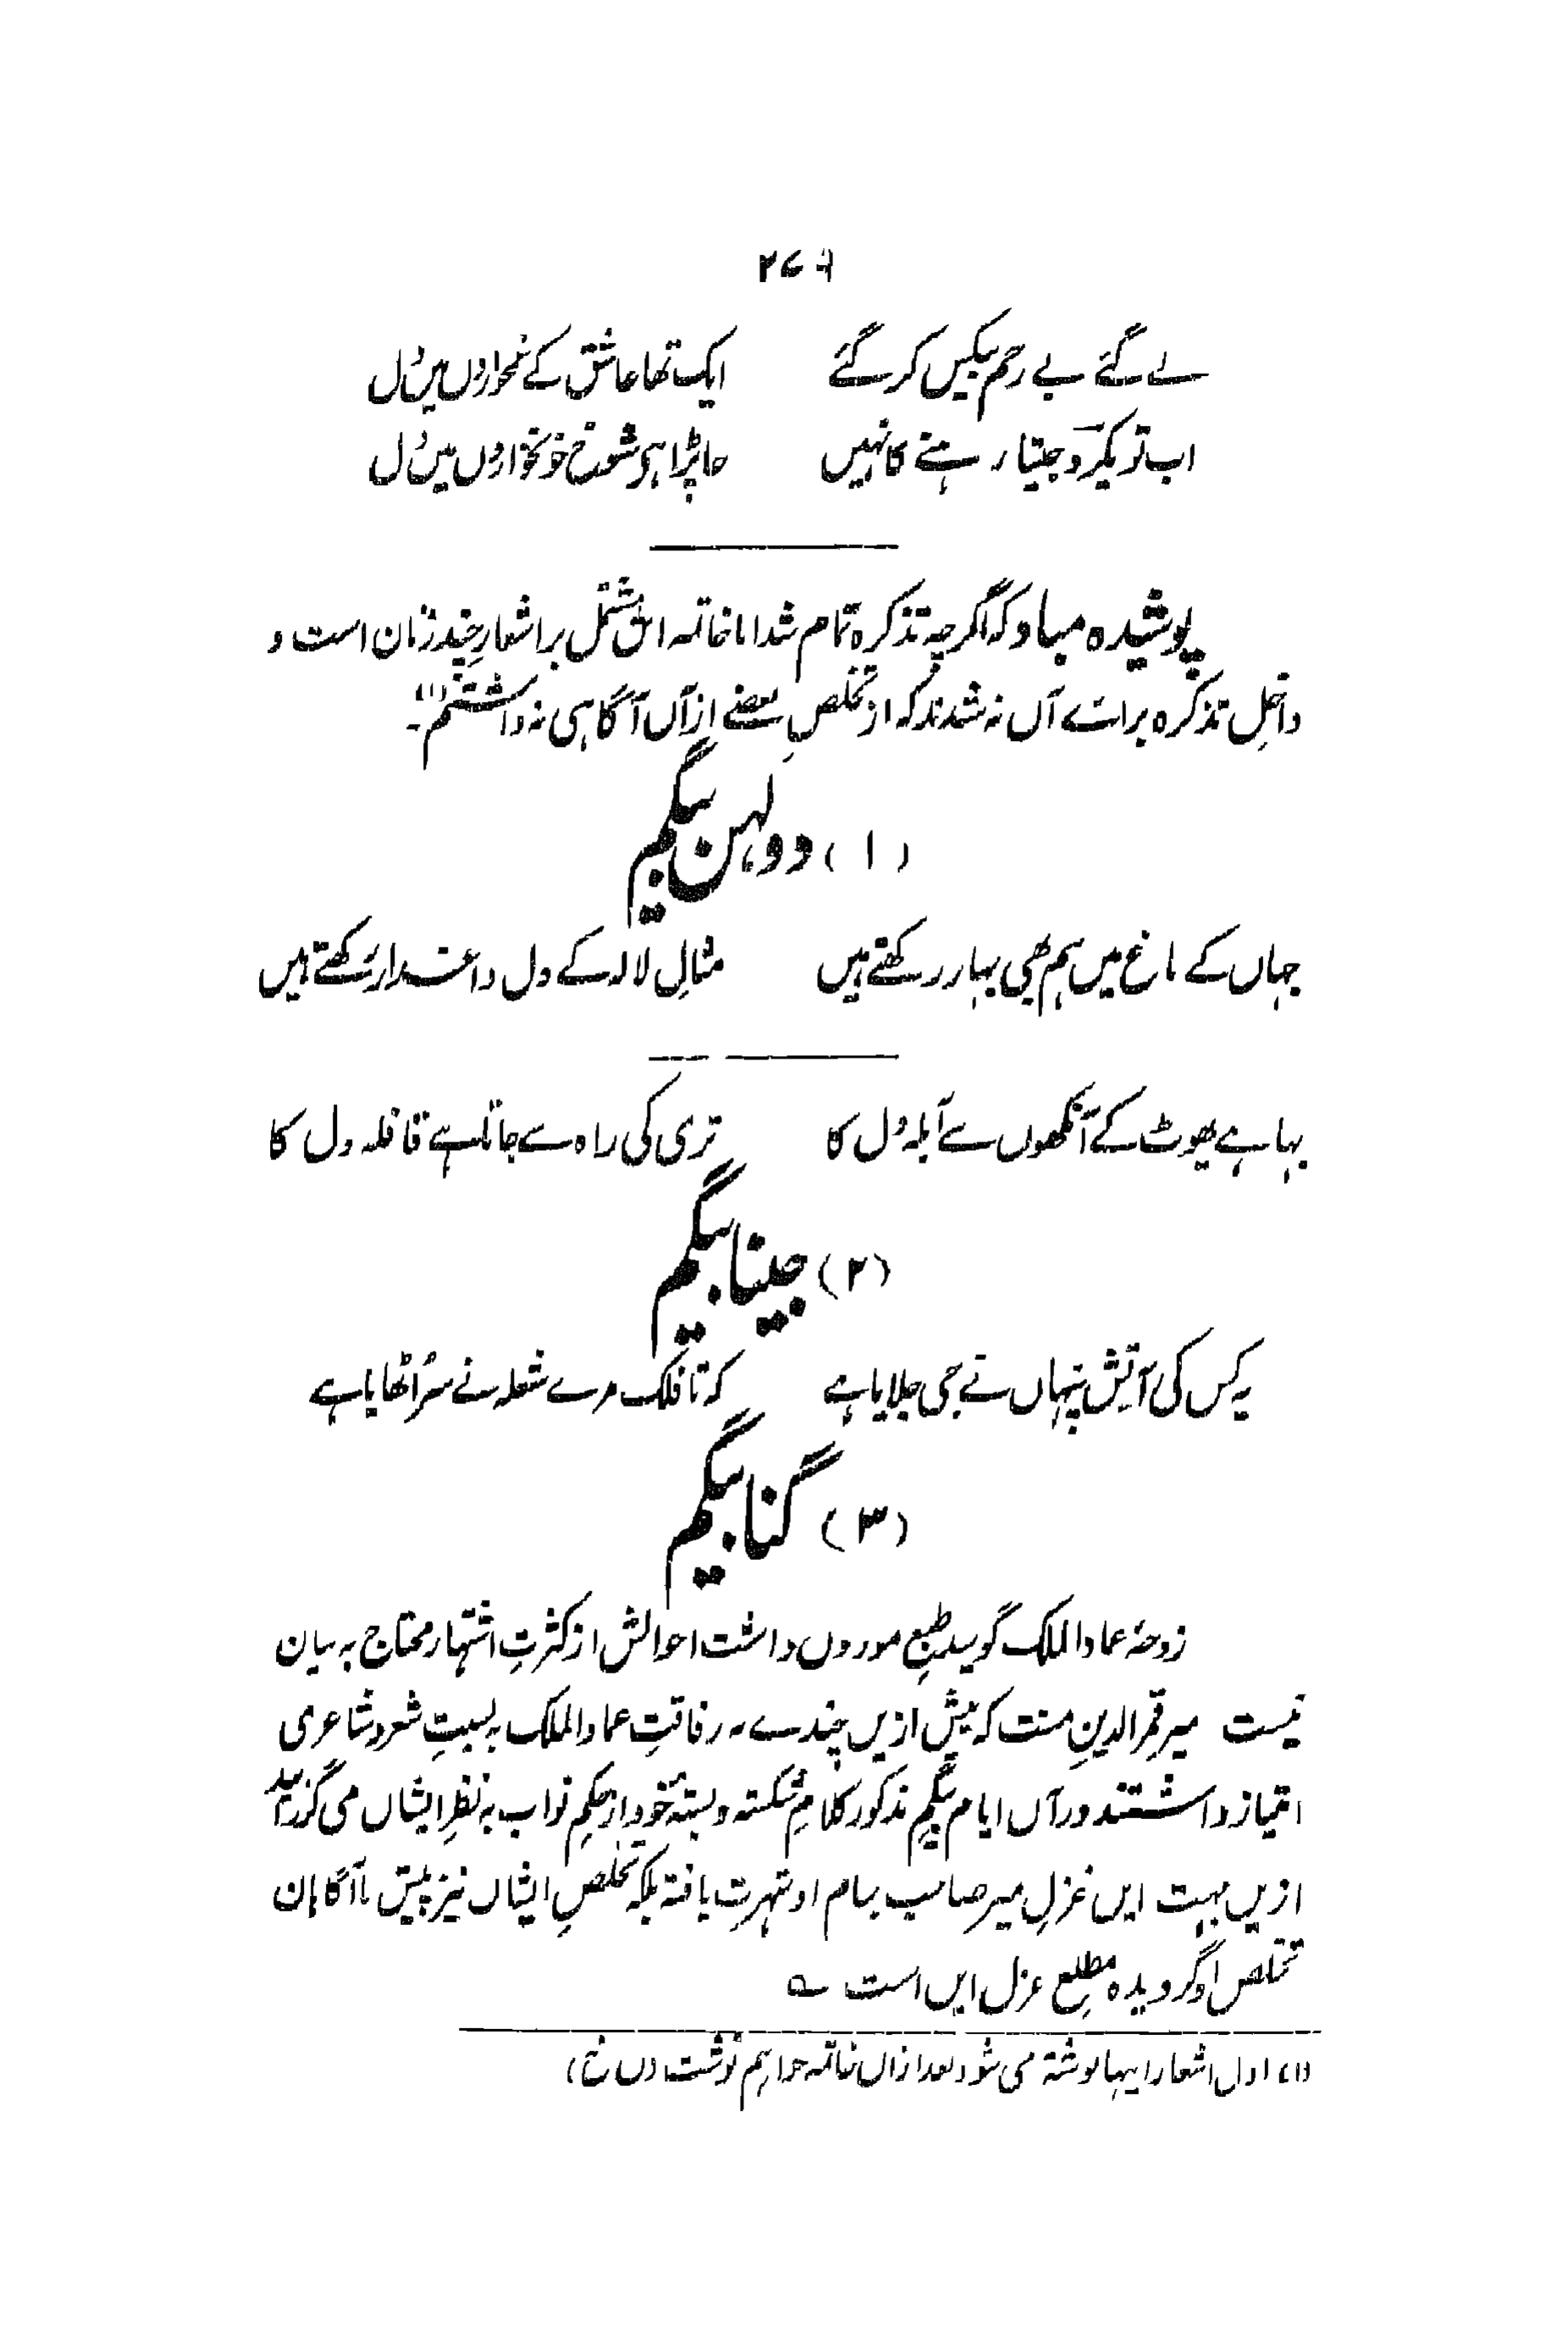 لے گئے بے رحم بیکس کر گئے ایک تھا عاشق کے غمخواروں میں دل
اب تو یکرو جیتا رہنے کا نہیں جا پڑا ہی شوخ خونخواروں میں دل
پوشیدہ مباد کہ اگرچہ تذکرہ تمام شد اما خاتمہ اش مشتمل بر اشعارِ چند زنان است و
داخلِ تذکرہ برائے آں نہ شدند کہ از تخلصِ بعضے ازآں آگاہی نہ داشتم (۱)۔
(۱) دولہن بیگم
جہاں کے باغ میں ہم بھی بہار رکھتے ہیں مثالِ لالہ کے دل داغدار رکھتے ہیں
بہا ہے پھوٹ کے آنکھوں سے آبلہ دل کا تری کی راہ سے جاتا ہے قافلہ دل کا
(۲) جینا بیگم
یہ کس کی آتشِ پنہاں نے جی جلایا ہے کہ تا فلک مرے شعلہ نے سر اُٹھایا ہے
(۳) گنا بیگم
زوجۂ عماد الملک گویند طبعِ موزوں داشت احوالش از کثرتِ اشتہار محتاج بہ بیان
نیست میر قمر الدین منت کہ پیش ازیں چندے بہ رفاقتِ عماد الملک بہ نسبتِ شعر و شاعری
امتیاز داشتند درآں ایام بیگم مذکور کلامِ شکستہ و بستۂ خود از حکمِ نواب بہ نظرِ ایشاں می گزرانید
ازیں جہت ایں غزلِ میر صاحب بنام او شہرت یافتہ بلکہ تخلصِ ایشاں نیز پیش ناآگاہان
تخلص او گردیدہ مطلعِ غزل ایں است ؎
(۱) اول اشعار اینہا نوشتہ می شود بعد ازاں خاتمہ خواہم نوشت (ن خ)